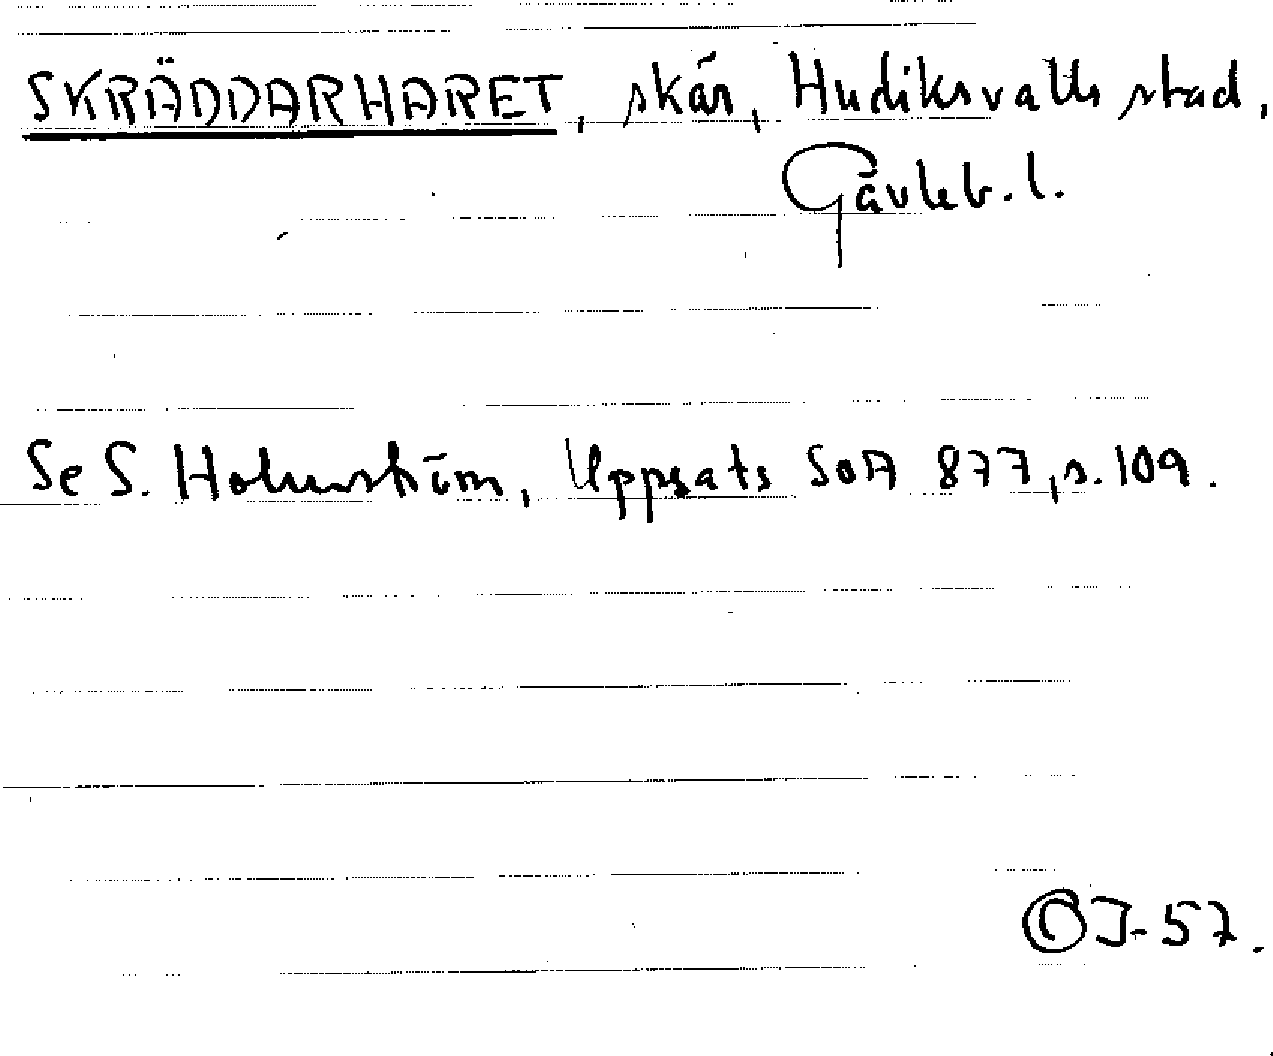 SKRÄDDARHARET, skär, Hudiksvalls stad,
Gävleb. l.
Se S. Holmström, Uppsats SOA 877, s. 109.
OJ-57.